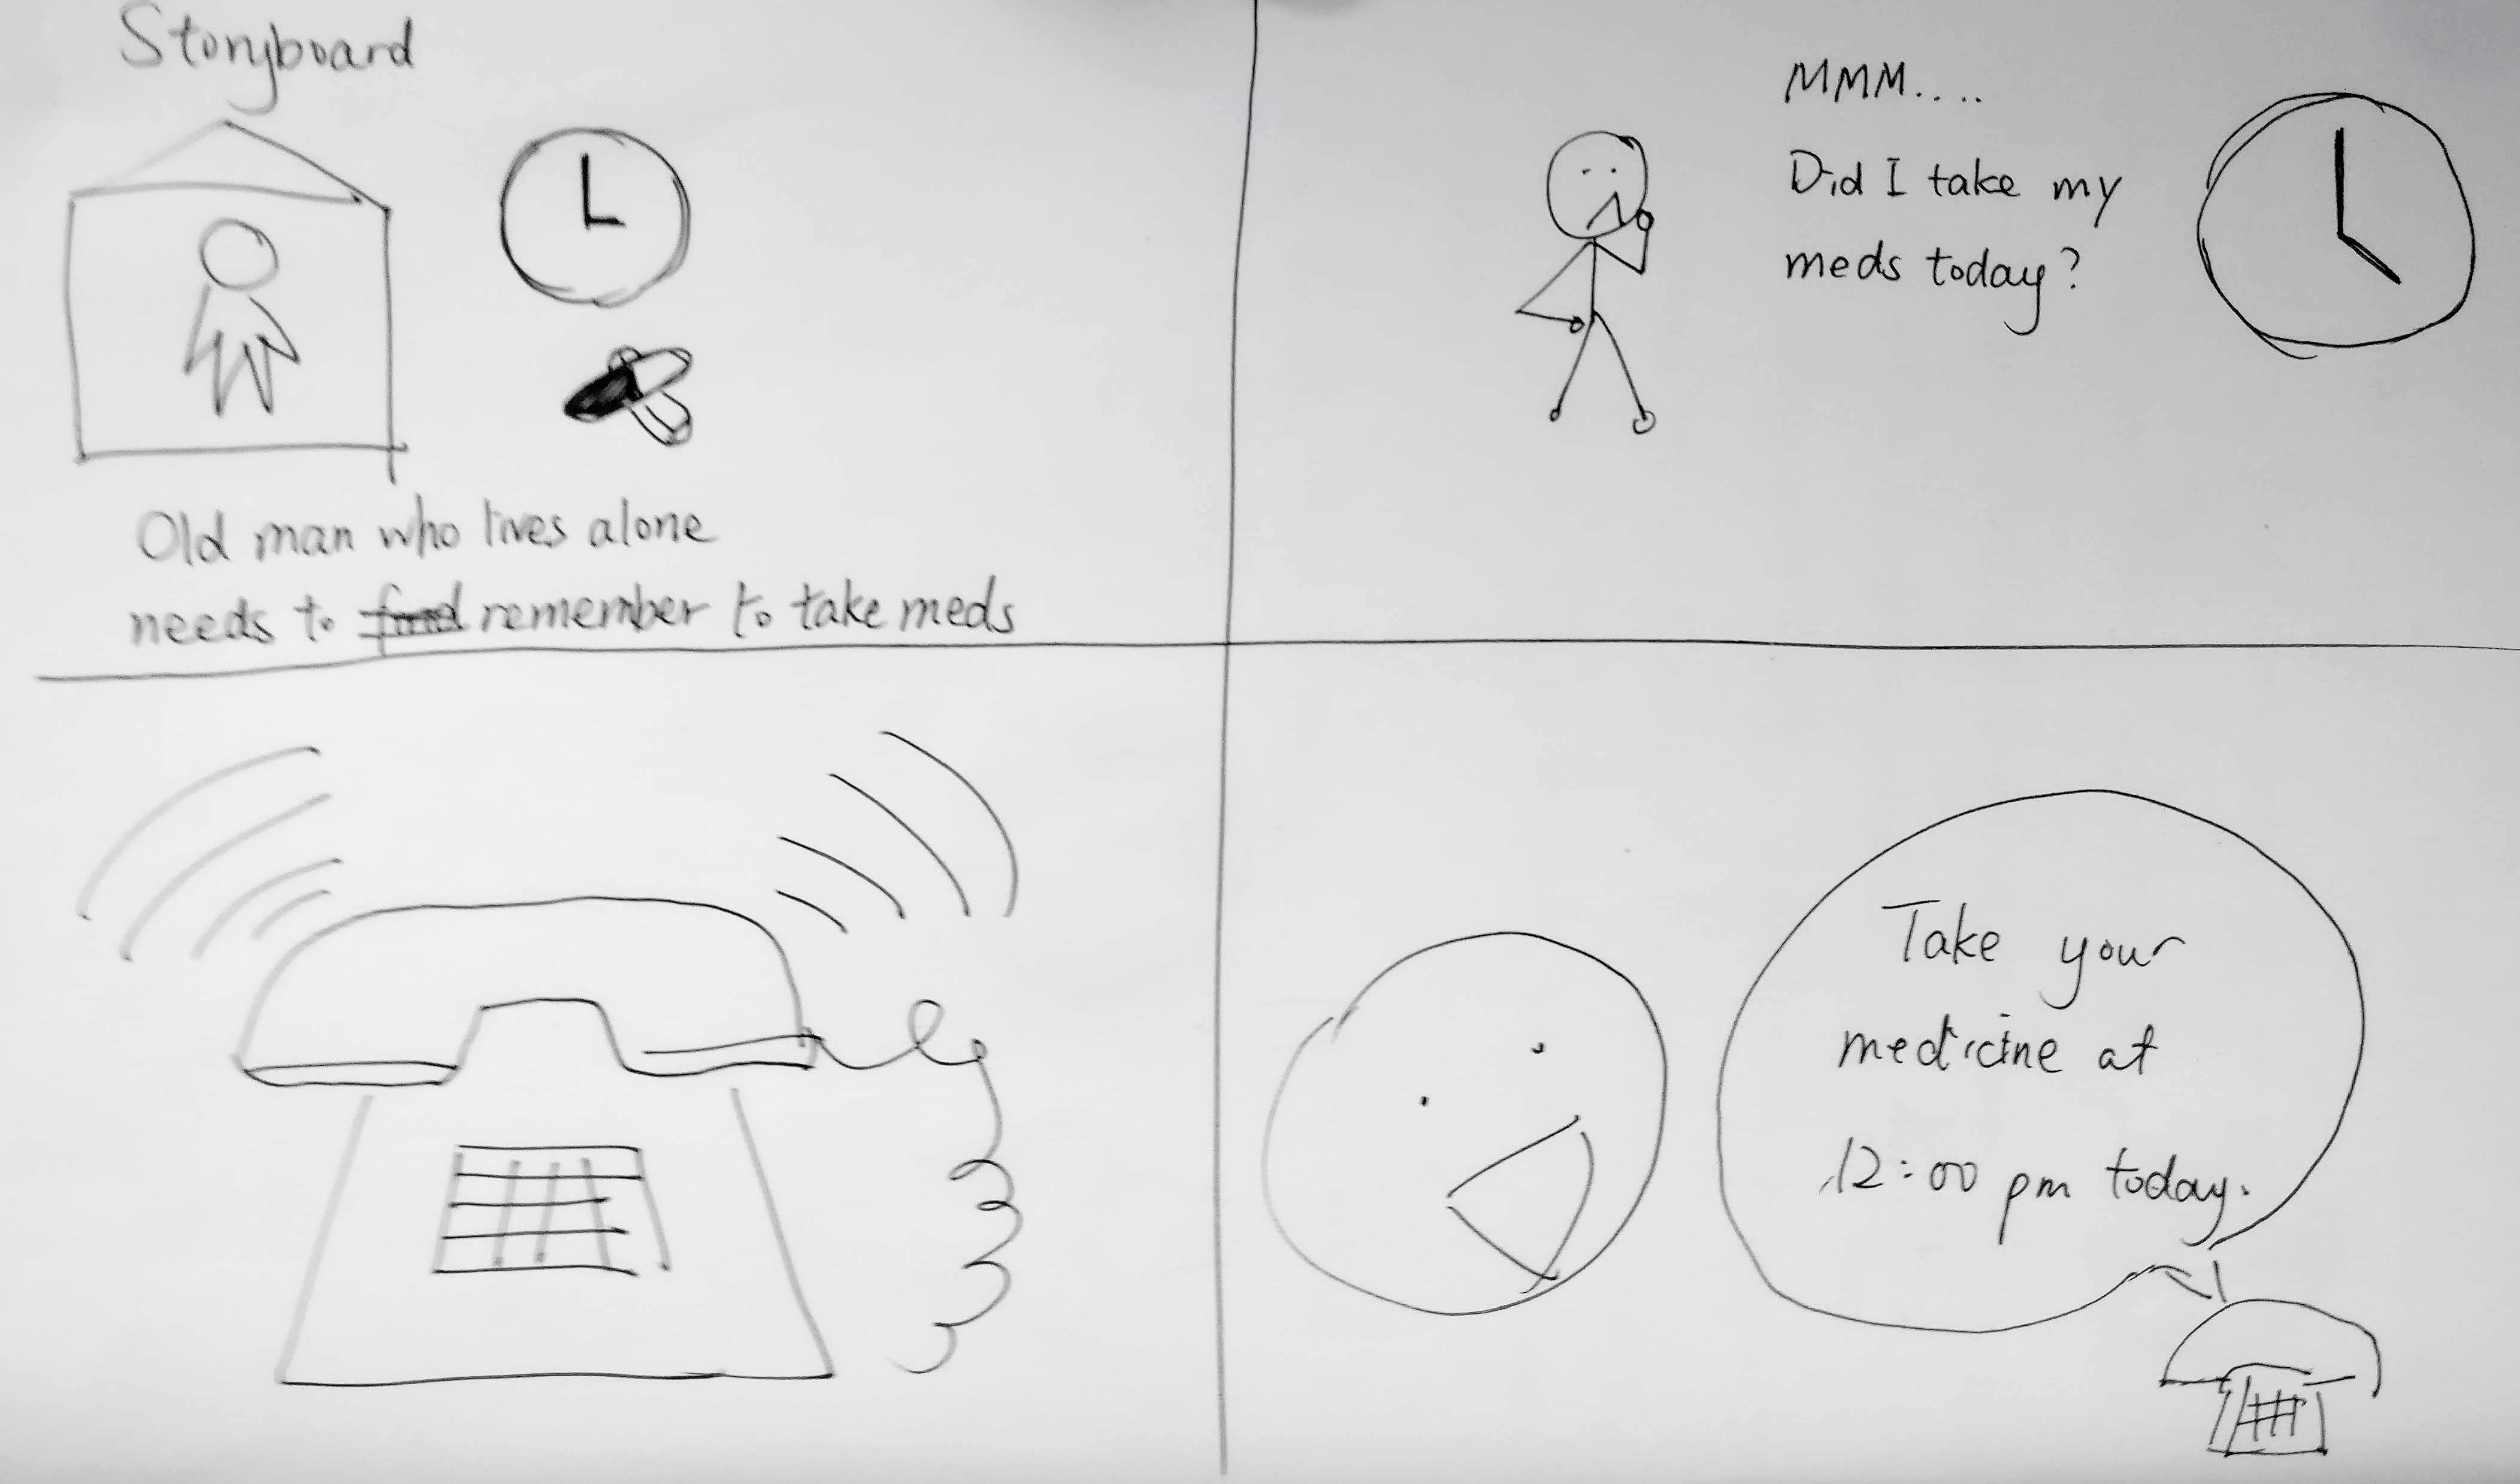 Storyboard
Old man who lives alone
needs to remember to take meds
MMM....
Did I take my
meds today?
Take your
medicine at
12:00 pm today.